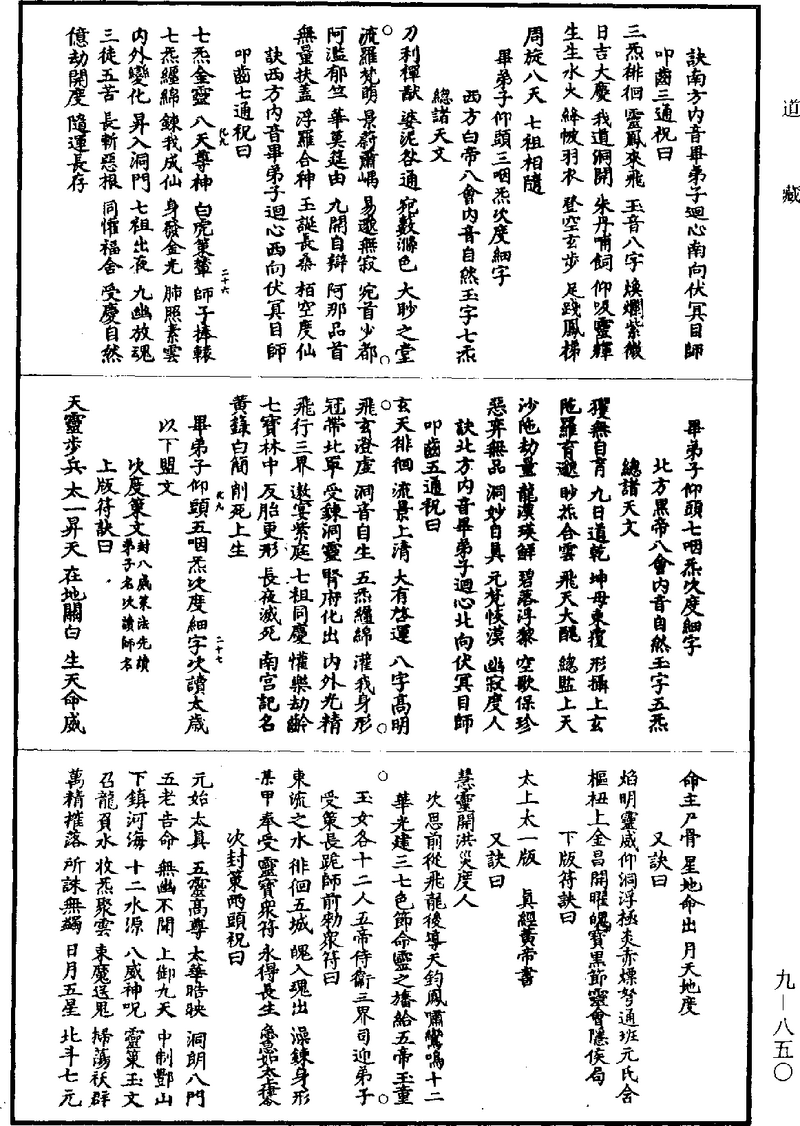 道藏
訣南方內音畢弟子迴心南向伏冥目師
叩齒三通祝曰
三炁徘徊 靈鳳來飛 玉音八字 煥爛紫微
日吉大慶 我道洞開 朱丹哺飼 仰吸靈暉
生生水火 絳帔羽衣 登空玄步 足踐鳳梯
周旋八天 七祖相隨
畢弟子仰頭三咽炁次度細字
西方白帝八會內音自然玉字七炁
總諸天文
刀利禪猷 婆泥咎通 宛藪滌色 大眇之堂
流羅梵萌 景蔚蕭嵎 易邈無寂 宛首少都
阿濫郁竺 華莫筵由 九開自辯 阿那品首
無量扶蓋 浮羅合神 玉誕長桑 栢空度仙
訣西方內音畢弟子迴心西向伏冥目師
叩齒七通祝曰
七炁金靈 八天尊神 白虎策輦 師子捧轅
七炁纏綿 鍊我成仙 身發金光 肺照素雲
內外變化 昇入洞門 七祖出夜 九幽放魂
三徒五苦 長斬惡根 同懽福舍 受慶自然
億劫開度 隨運長存
化九
二十六
畢弟子仰頭七咽炁次度細字
北方黑帝八會內音自然玉字五炁
總諸天文
玃無自育 九日道乾 坤母東覆 形攝上玄
陁羅育邈 眇炁合雲 飛天大醜 總監上天
沙陁劫量 龍漢瑛鮮 碧落浮黎 空歌保珍
惡弈無品 洞妙自真 元梵恢漠 幽寂度人
訣北方內音畢弟子迴心北向伏冥目師
叩齒五通祝曰
玄天徘徊 流景上清 大有啓運 八字高明
飛玄澄虛 洞音自生 五炁纏綿 灌我身形
冠帶北軍 受鍊洞靈 腎府化出 內外光精
飛行三界 遨宴紫庭 七祖同慶 懽樂劫齡
七寶林中 反胎更形 長夜滅死 南宫記名
黃籙白簡 削死上生
化九
二十七
畢弟子仰頭五咽炁次度細字次讀太歲
以下盟文
次度策文封八威策法先讀弟子名次讀師名
上版符訣曰
天靈步兵 太一昇天 在地關白 生天命威
命主尸骨 星地命出 月天地度
又訣曰
焰明靈威仰洞浮極炎赤熛弩通班元氏含
樞紐上金昌開曜魄寶黑節靈會隱侯局
下版符訣曰
太上太一版 真經黃帝書
又訣曰
慧靈開洪災度人
次思前從飛龍後導天鈞鳳嘯鸞鳴十二
華光建三七色節命靈之旛給五帝玉童
玉女各十二人五帝侍衛三界司迎弟子
受策長跪師前勑衆符曰
東流之水 徘徊五城 魄入魂出 澡鍊身形
某甲奉受 靈寶衆符 永得長生
次封策兩頭祝曰
元始太真 五靈高尊 太華晧映 洞朗八門
五老告命 無幽不聞 上御九天 中制酆山
下鎮河海 十二水源 八威神呪 靈策玉文
召龍負水 收炁聚雲 束魔送鬼 掃蕩祅群
萬精摧落 所誅無蠲 日月五星 北斗七元
九—八五〇